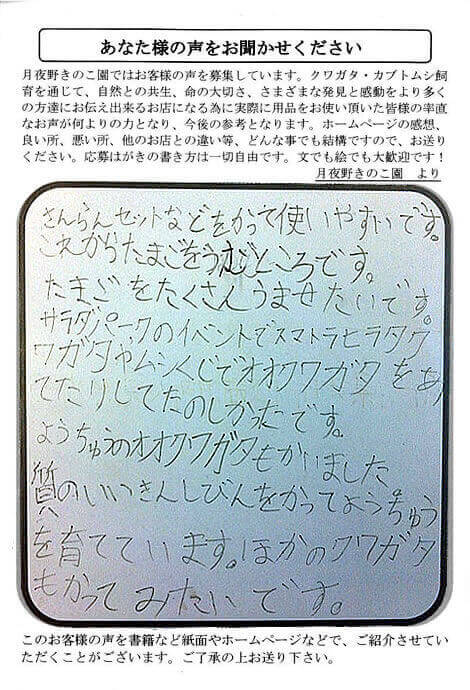 あなた様の声をお聞かせください
月夜野きのこ園ではお客様の声を募集しています。クワガタ・カブトムシ飼
育を通じて、自然との共生、命の大切さ、さまざまな発見と感動をより多く
の方達にお伝え出来るお店になる為に実際に用品をお使い頂いた皆様の率直
なお声が何よりの力となり、今後の参考となります。ホームページの感想、
良い所、悪い所、他のお店との違い等、どんな事でも結構ですので、お送り
ください。応募はがきの書き方は一切自由です。文でも絵でも大歓迎です！
月夜野きのこ園　より
さんらんセットなどをかって使いやすいです。
これからたまごをうむところです。
たまごをたくさんうませたいです。
サラダパークのイベントでスマトラヒラタク
ワガタやムシくじでオオクワガタをあ
てたりしてたのしかったです。
ようちゅうのオオクワガタもかいました
質のいいきんしびんをかってようちゅう
を育てています。ほかのクワガタ
もかってみたいです。
このお客様の声を書籍など紙面やホームページなどで、ご紹介させてい
ただくことがございます。ご了承の上お送り下さい。